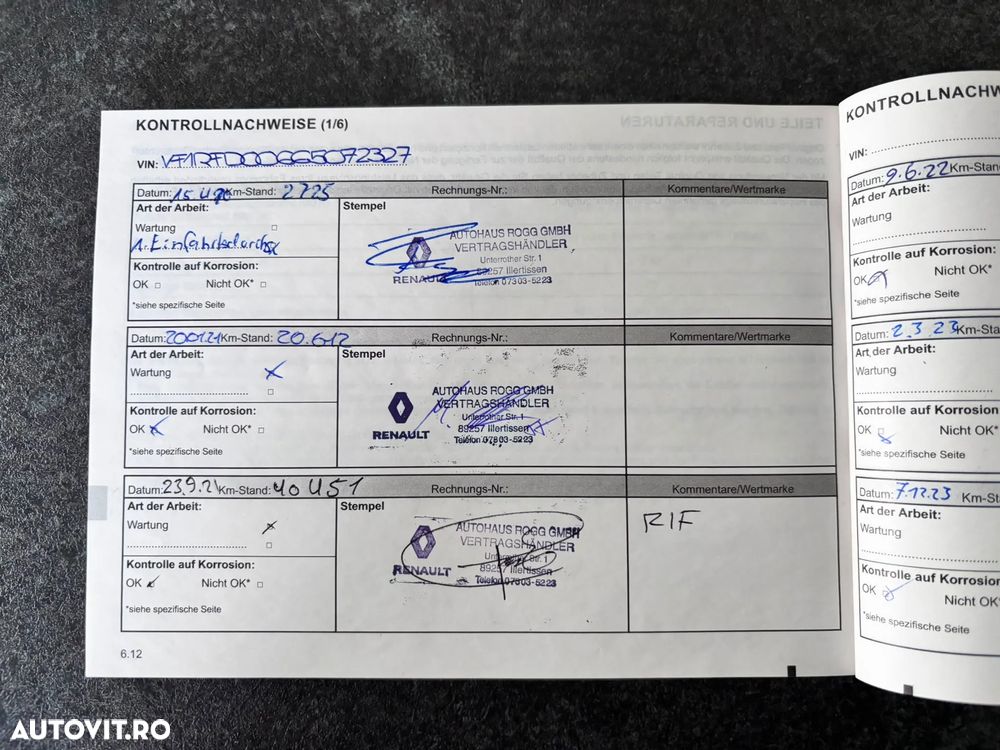 KONTROLLNACHWEISE (1/6)
VIN: VF1RFD00665072327
Datum: 15.4.20 Km-Stand: 2725 Rechnungs-Nr.: Kommentare/Wertmarke
Art der Arbeit: Stempel
Wartung
1. Einfahrtsdurchs
Kontrolle auf Korrosion:
OK Nicht OK*
*siehe spezifische Seite
AUTOHAUS ROGG GMBH
VERTRAGSHÄNDLER
Unterrother Str. 1
89257 Illertissen
RENAULT Telefon 07303-5223
Datum: 20.01.21 Km-Stand: 20.612 Rechnungs-Nr.: Kommentare/Wertmarke
Art der Arbeit: Stempel
Wartung
Kontrolle auf Korrosion:
OK Nicht OK*
*siehe spezifische Seite
AUTOHAUS ROGG GMBH
VERTRAGSHÄNDLER
Unterrother Str. 1
89257 Illertissen
RENAULT Telefon 07303-5223
Datum: 23.9.21 Km-Stand: 40451 Rechnungs-Nr.: Kommentare/Wertmarke
Art der Arbeit: Stempel
Wartung
Kontrolle auf Korrosion:
OK Nicht OK*
*siehe spezifische Seite
AUTOHAUS ROGG GMBH
VERTRAGSHÄNDLER
Unterrother Str. 1
89257 Illertissen
RENAULT Telefon 07303-5223
RIF
6.12
KONTROLLNACHW
VIN:
Datum: 9.6.22 Km-Stand
Art der Arbeit:
Wartung
Kontrolle auf Korrosion:
OK Nicht OK*
*siehe spezifische Seite
Datum: 2.3.23 Km-Sta
Art der Arbeit:
Wartung
Kontrolle auf Korrosion
OK Nicht OK*
*siehe spezifische Seite
Datum: 7.12.23 Km-St
Art der Arbeit:
Wartung
Kontrolle auf Korrosion
OK Nicht OK*
*siehe spezifische Seite
AUTOVIT.RO